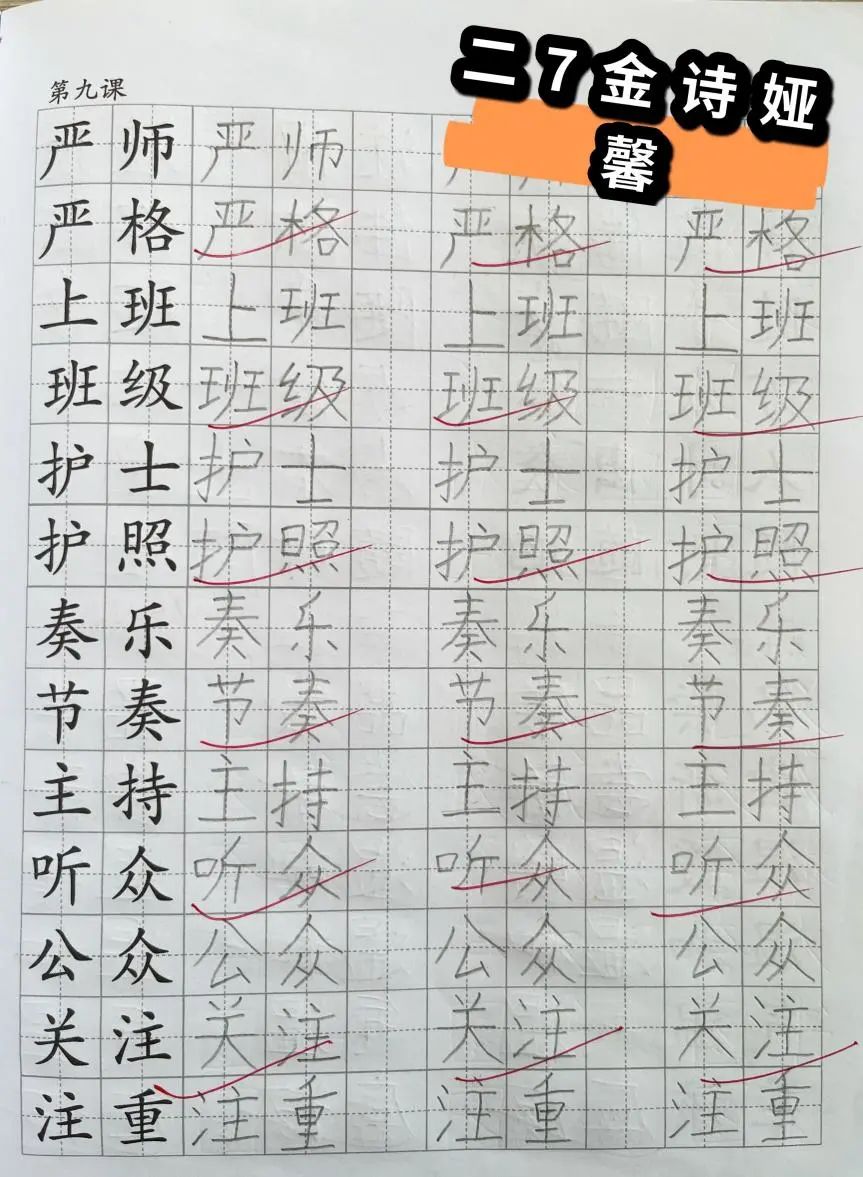 二7金诗娅
馨
第九课
严师 严师
严格 严格 严格 严格
上班 上班 上班 上班
班级 班级 班级 班级
护士 护士 护士 护士
护照 护照 护照 护照
奏乐 奏乐 奏乐 奏乐
节奏 节奏 节奏 节奏
主持 主持 主持 主持
听众 听众 听众 听众
公众 公众 公众 公众
关注 关注 关注 关注
注重 注重 注重 注重